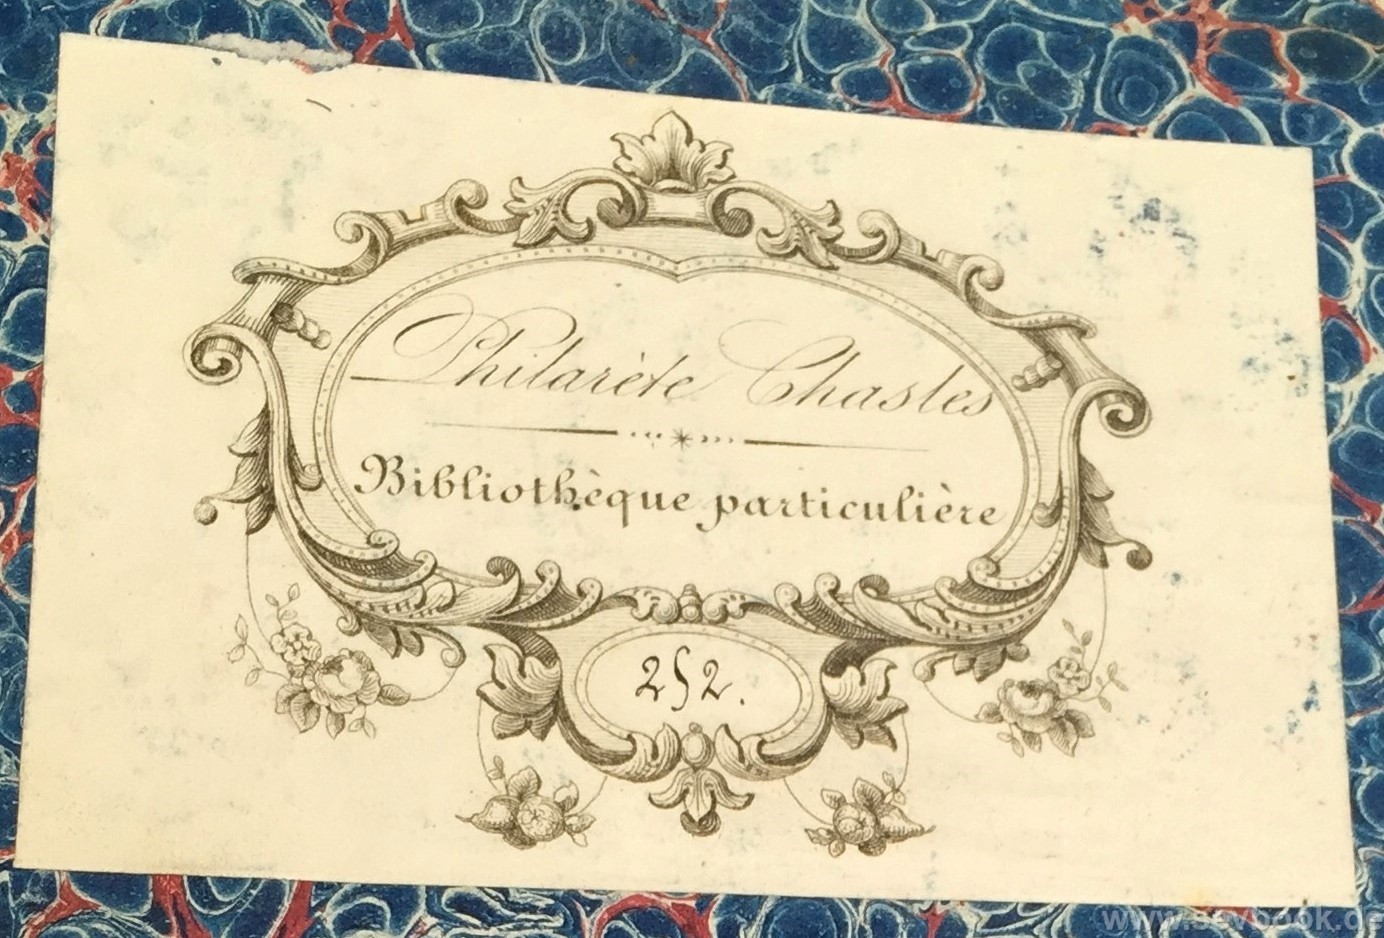 Philarète Chasles
Bibliothèque particulière
252.
www.sevbook.de